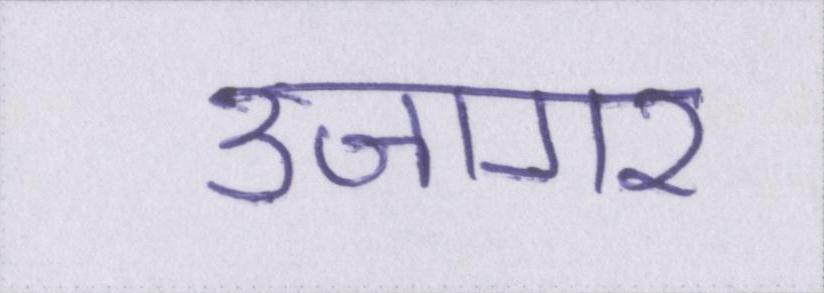 उजागर